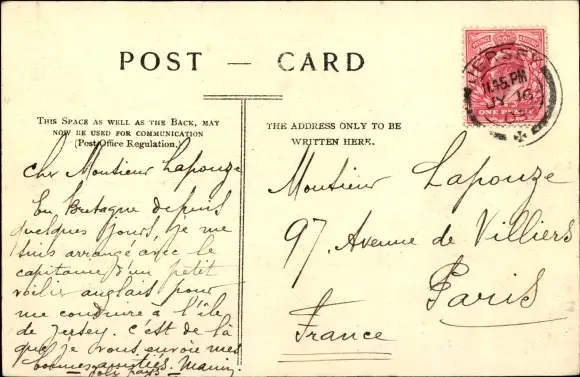 POST - CARD
THIS SPACE AS WELL AS THE BACK, MAY
NOW BE USED FOR COMMUNICATION
(Post Office Regulation.)
THE ADDRESS ONLY TO BE
WRITTEN HERE.
JERSEY
11.45 PM
JY 16
ONE PENNY
Cher Monsieur Lapouze
En Bretagne depuis
quelques jours, je me
suis arrangé avec le
capitaine d'un petit
voilier anglais pour
me conduire à l'île
de Jersey. C'est de là
que je vous envoie mes
bonnes amitiés.
Monsieur Lapouze
97, Avenue de Villiers
Paris
France